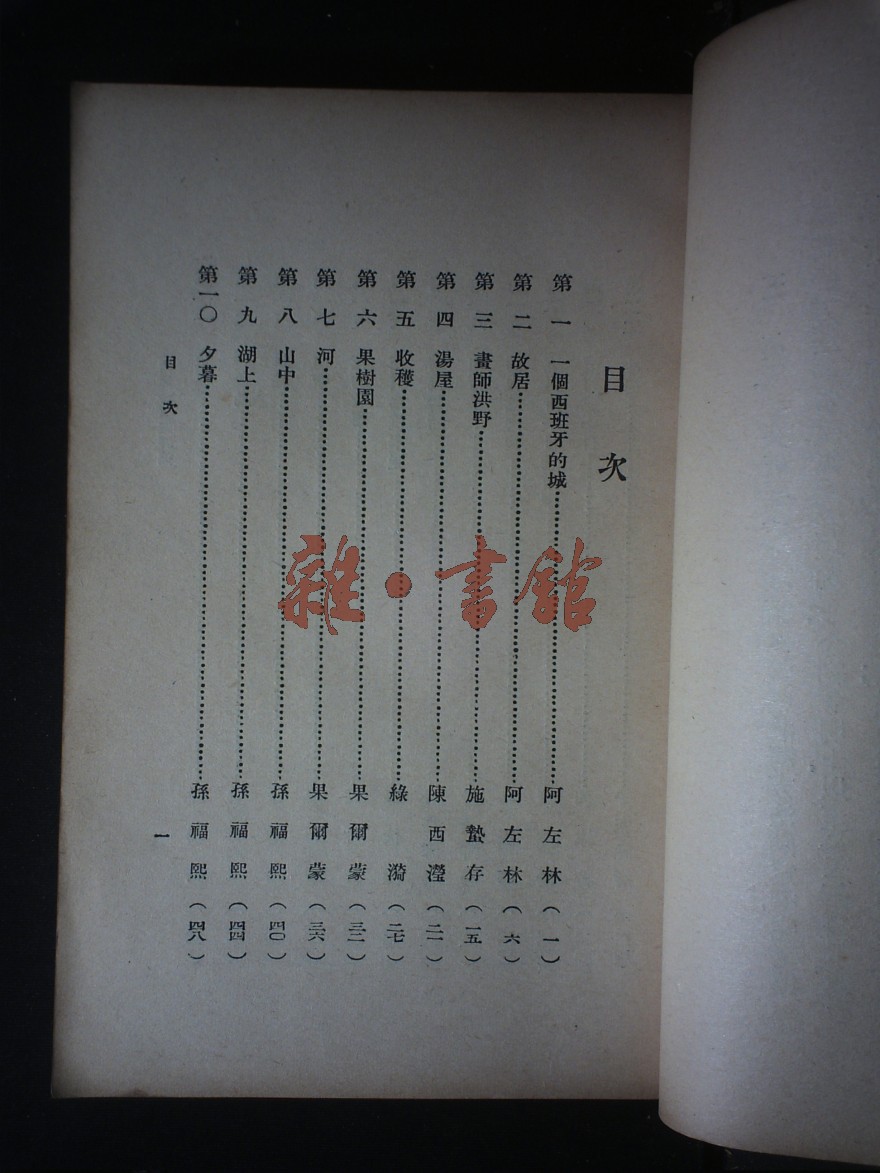 目次
第一 一個西班牙的城……阿左林(一)
第二 故居……阿左林(六)
第三 畫師洪野……施蟄存(一五)
第四 湯屋……陳西瀅(二一)
第五 收穫……綠漪(二七)
第六 果樹園……果爾蒙(三二)
第七 河……果爾蒙(三六)
第八 山中……孫福熙(四〇)
第九 湖上……孫福熙(四四)
第一〇 夕暮……孫福熙(四八)
目次
一
雜·書館